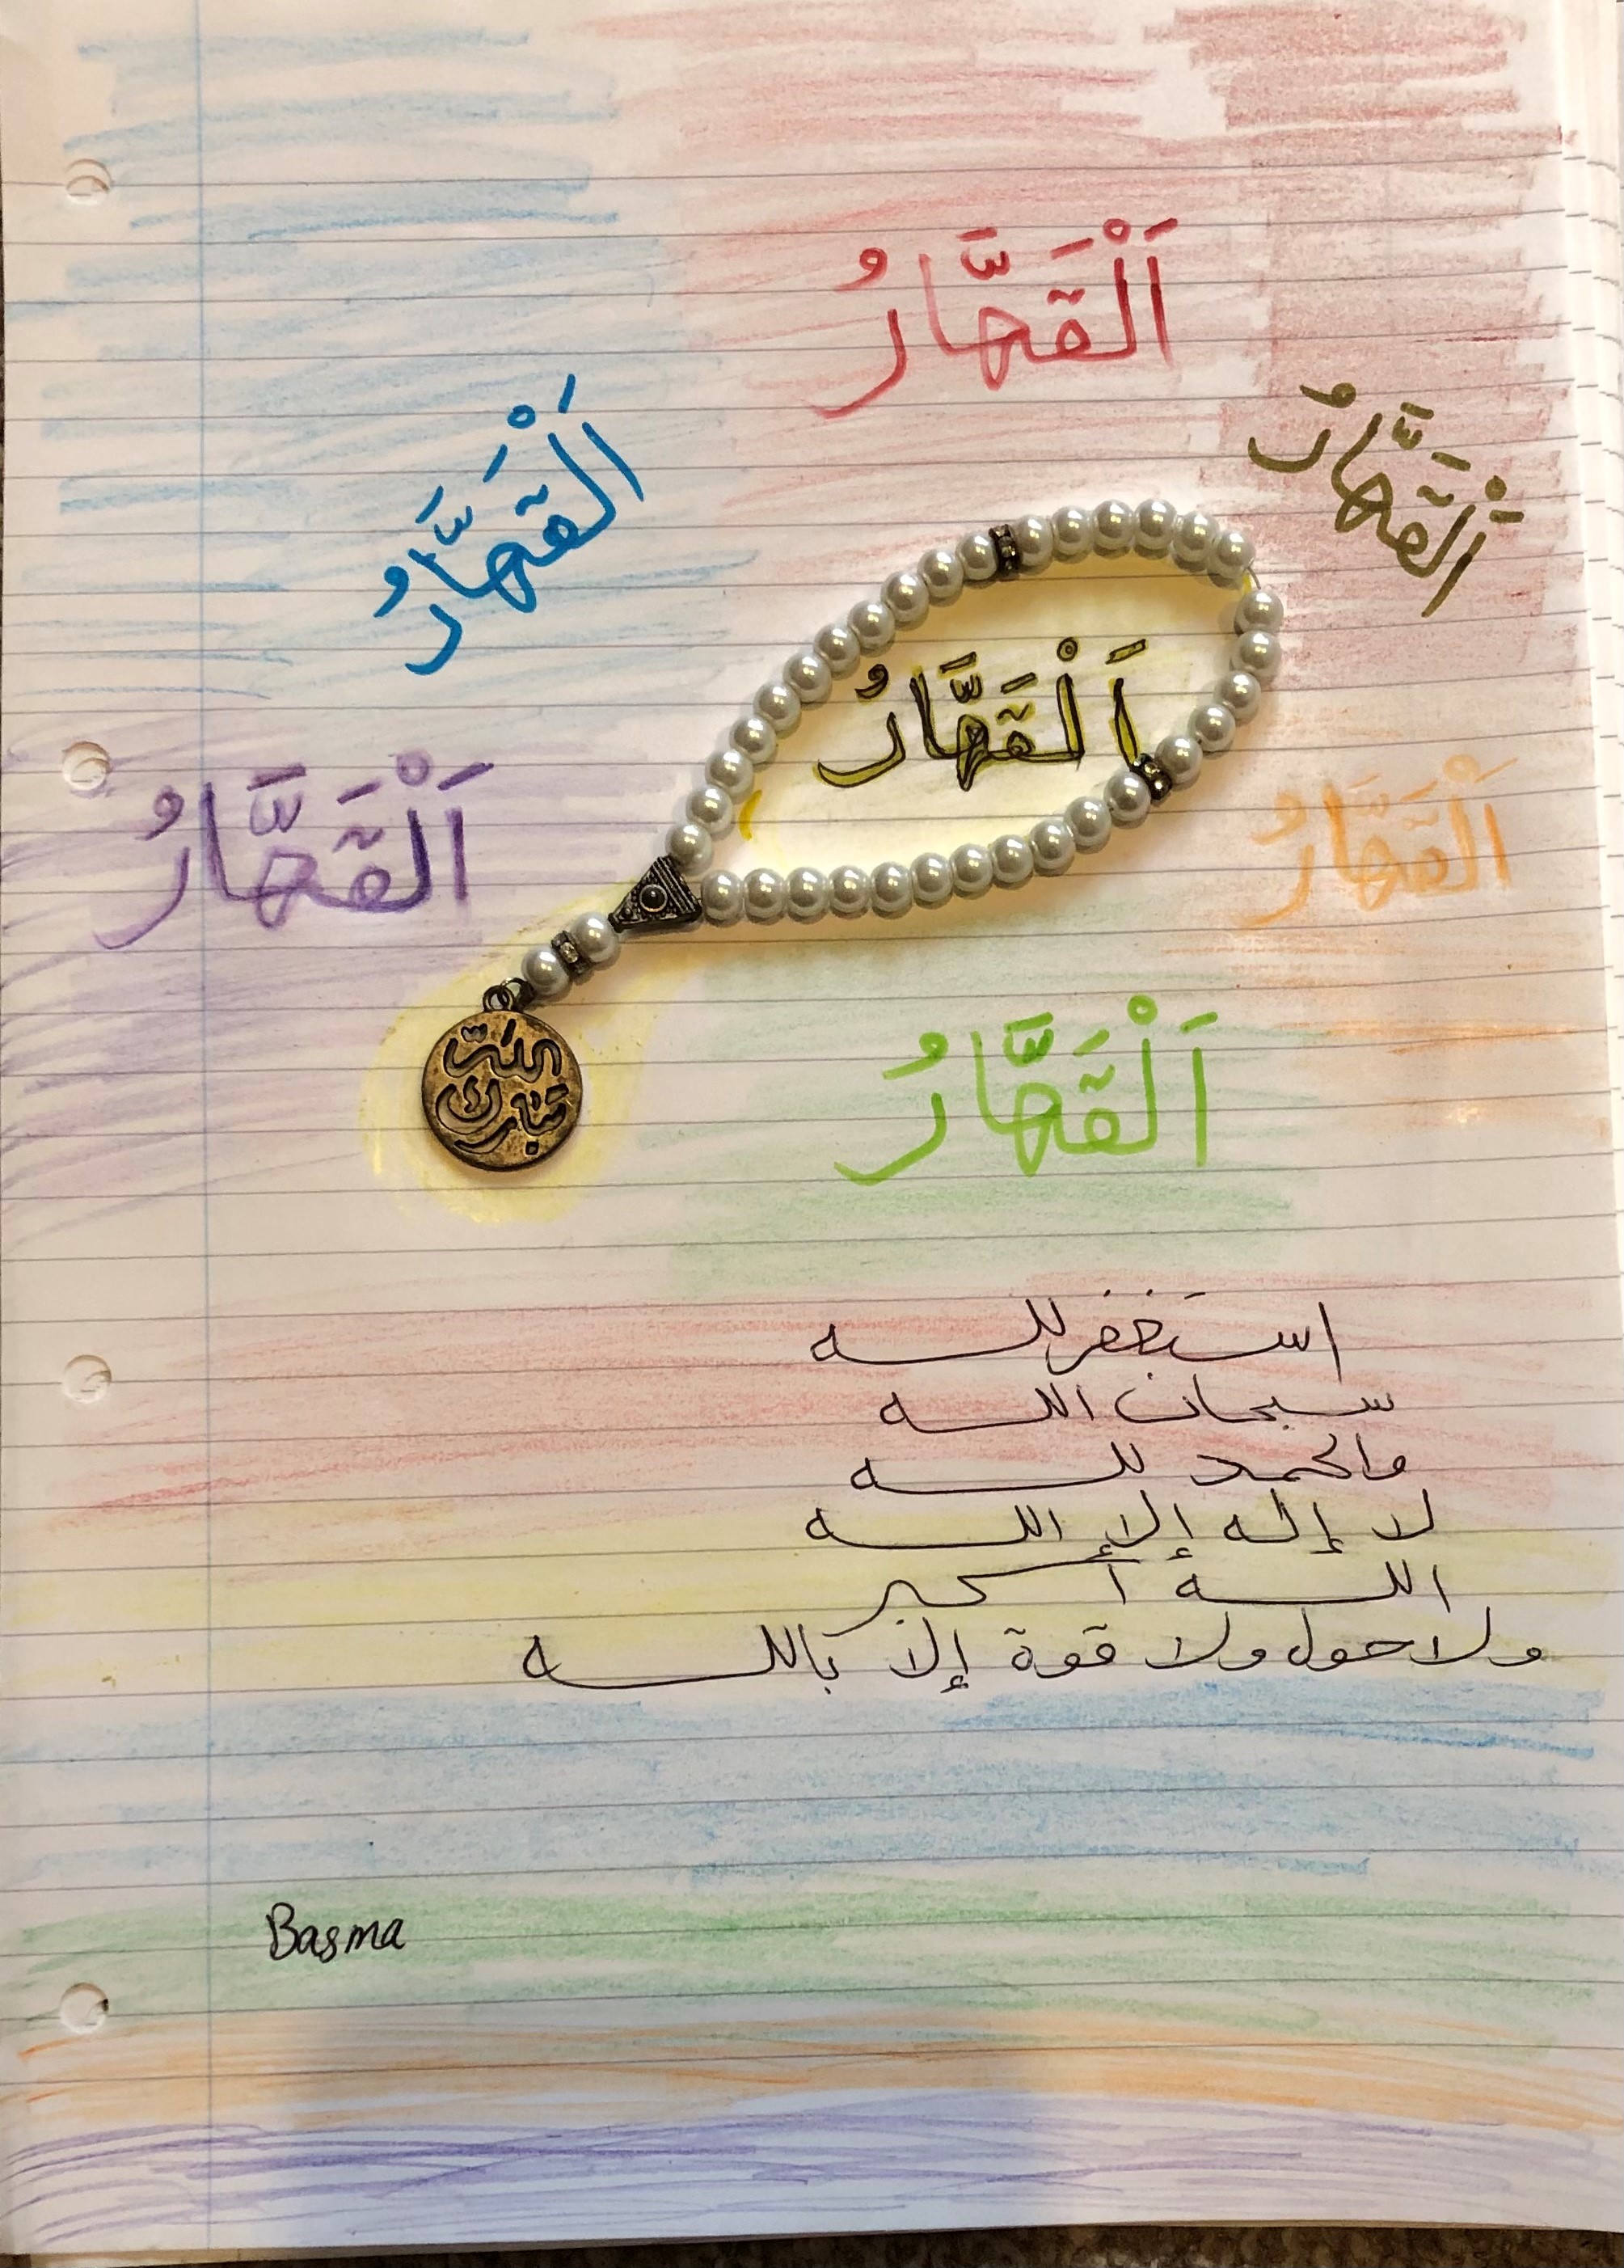 اَلْقَهَّارُ
اَلْقَهَّارُ
اَلْقَهَّارُ
اَلْقَهَّارُ
اَلْقَهَّارُ
اَلْقَهَّارُ
اَلْقَهَّارُ
الله
تبارك
استغفر لله
سبحان الله
والحمد لله
لا إله إلا الله
الله أكبر
ولا حول ولا قوة إلا بالله
Basma